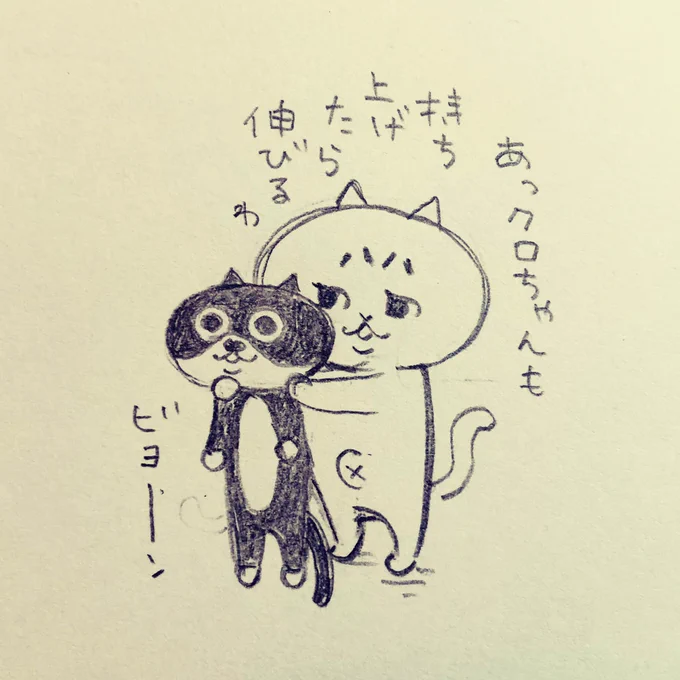 あっクロちゃんも
持ち
上げ
たら
伸びる
わ
ビヨーン